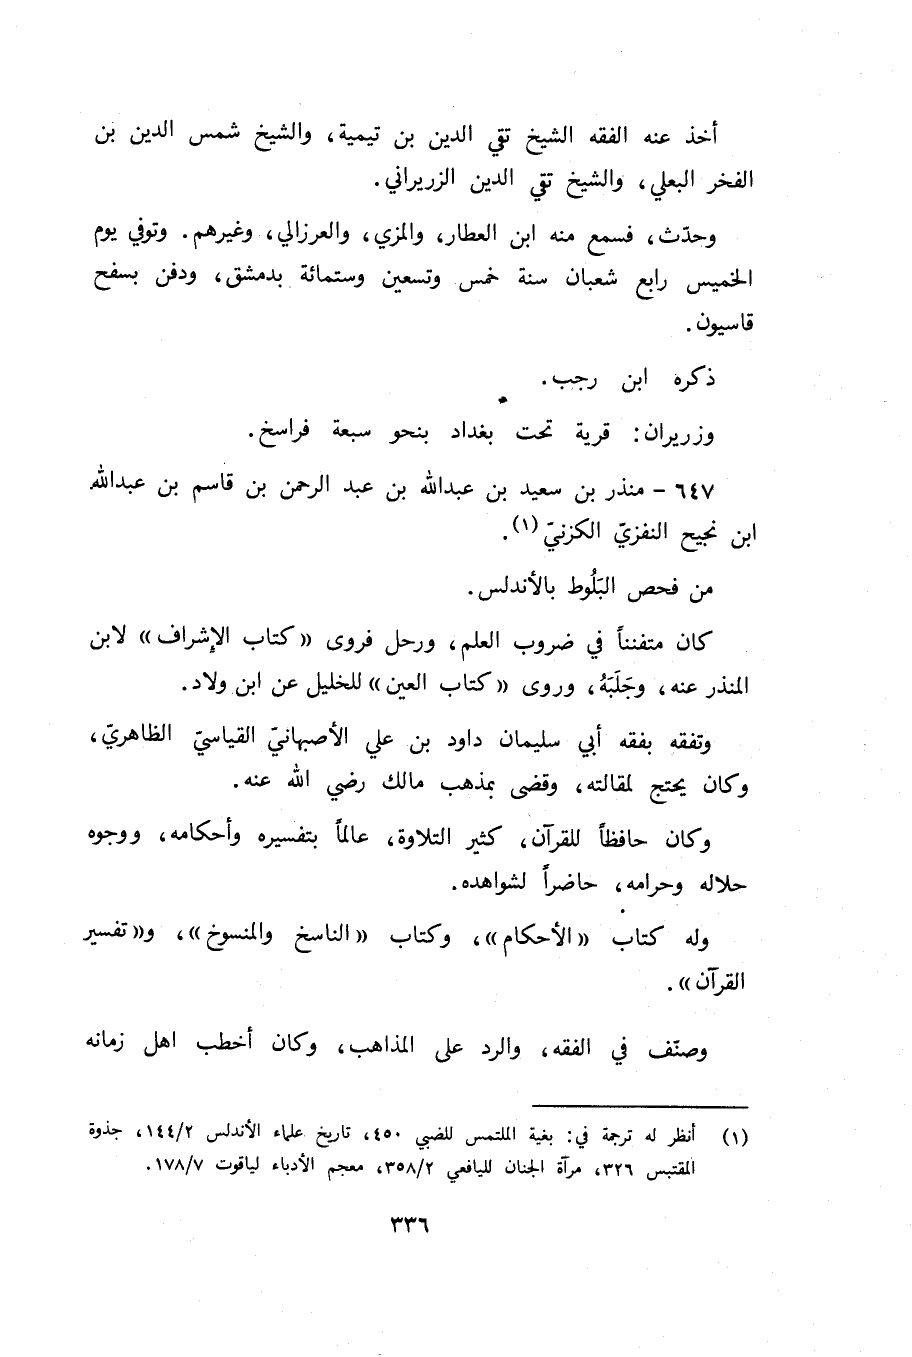 أخذ عنه الفقه الشيخ تقي الدين بن تيمية، والشيخ شمس الدين بن
الفخر البعلي، والشيخ تقي الدين الزريراني.
وحدّث، فسمع منه ابن العطار، والمزي، والعرزالي، وغيرهم. وتوفي يوم
الخميس رابع شعبان سنة خمس وتسعين وستمائة بدمشق، ودفن بسفح
قاسيون.
ذكره ابن رجب.
وزريران: قرية تحت بغداد بنحو سبعة فراسخ.
٦٤٧ - منذر بن سعيد بن عبدالله بن عبد الرحمن بن قاسم بن عبدالله
ابن نجيح النفزيّ الكزنيّ (١).
من فحص البَلُوط بالأندلس.
كان متفنناً في ضروب العلم، ورحل فروى «كتاب الإشراف» لابن
المنذر عنه، وجَلَبَهُ، وروى «كتاب العين» للخليل عن ابن ولاد.
وتفقه بفقه أبي سليمان داود بن علي الأصبهانيّ القياسيّ الظاهريّ،
وكان يحتج لمقالته، وقضى بمذهب مالك رضي الله عنه.
وكان حافظاً للقرآن، كثير التلاوة، عالماً بتفسيره وأحكامه، ووجوه
حلاله وحرامه، حاضراً لشواهده.
وله كتاب «الأحكام»، وكتاب «الناسخ والمنسوخ»، و«تفسير
القرآن».
وصنّف في الفقه، والرد على المذاهب، وكان أخطب اهل زمانه
(١) أنظر له ترجمة في: بغية الملتمس للضبي ٤٥٠، تاريخ علماء الأندلس ١٤٤/٢، جذوة
المقتبس ٣٢٦، مرآة الجنان لليافعي ٣٥٨/٢، معجم الأدباء لياقوت ١٧٨/٧.
٣٣٦